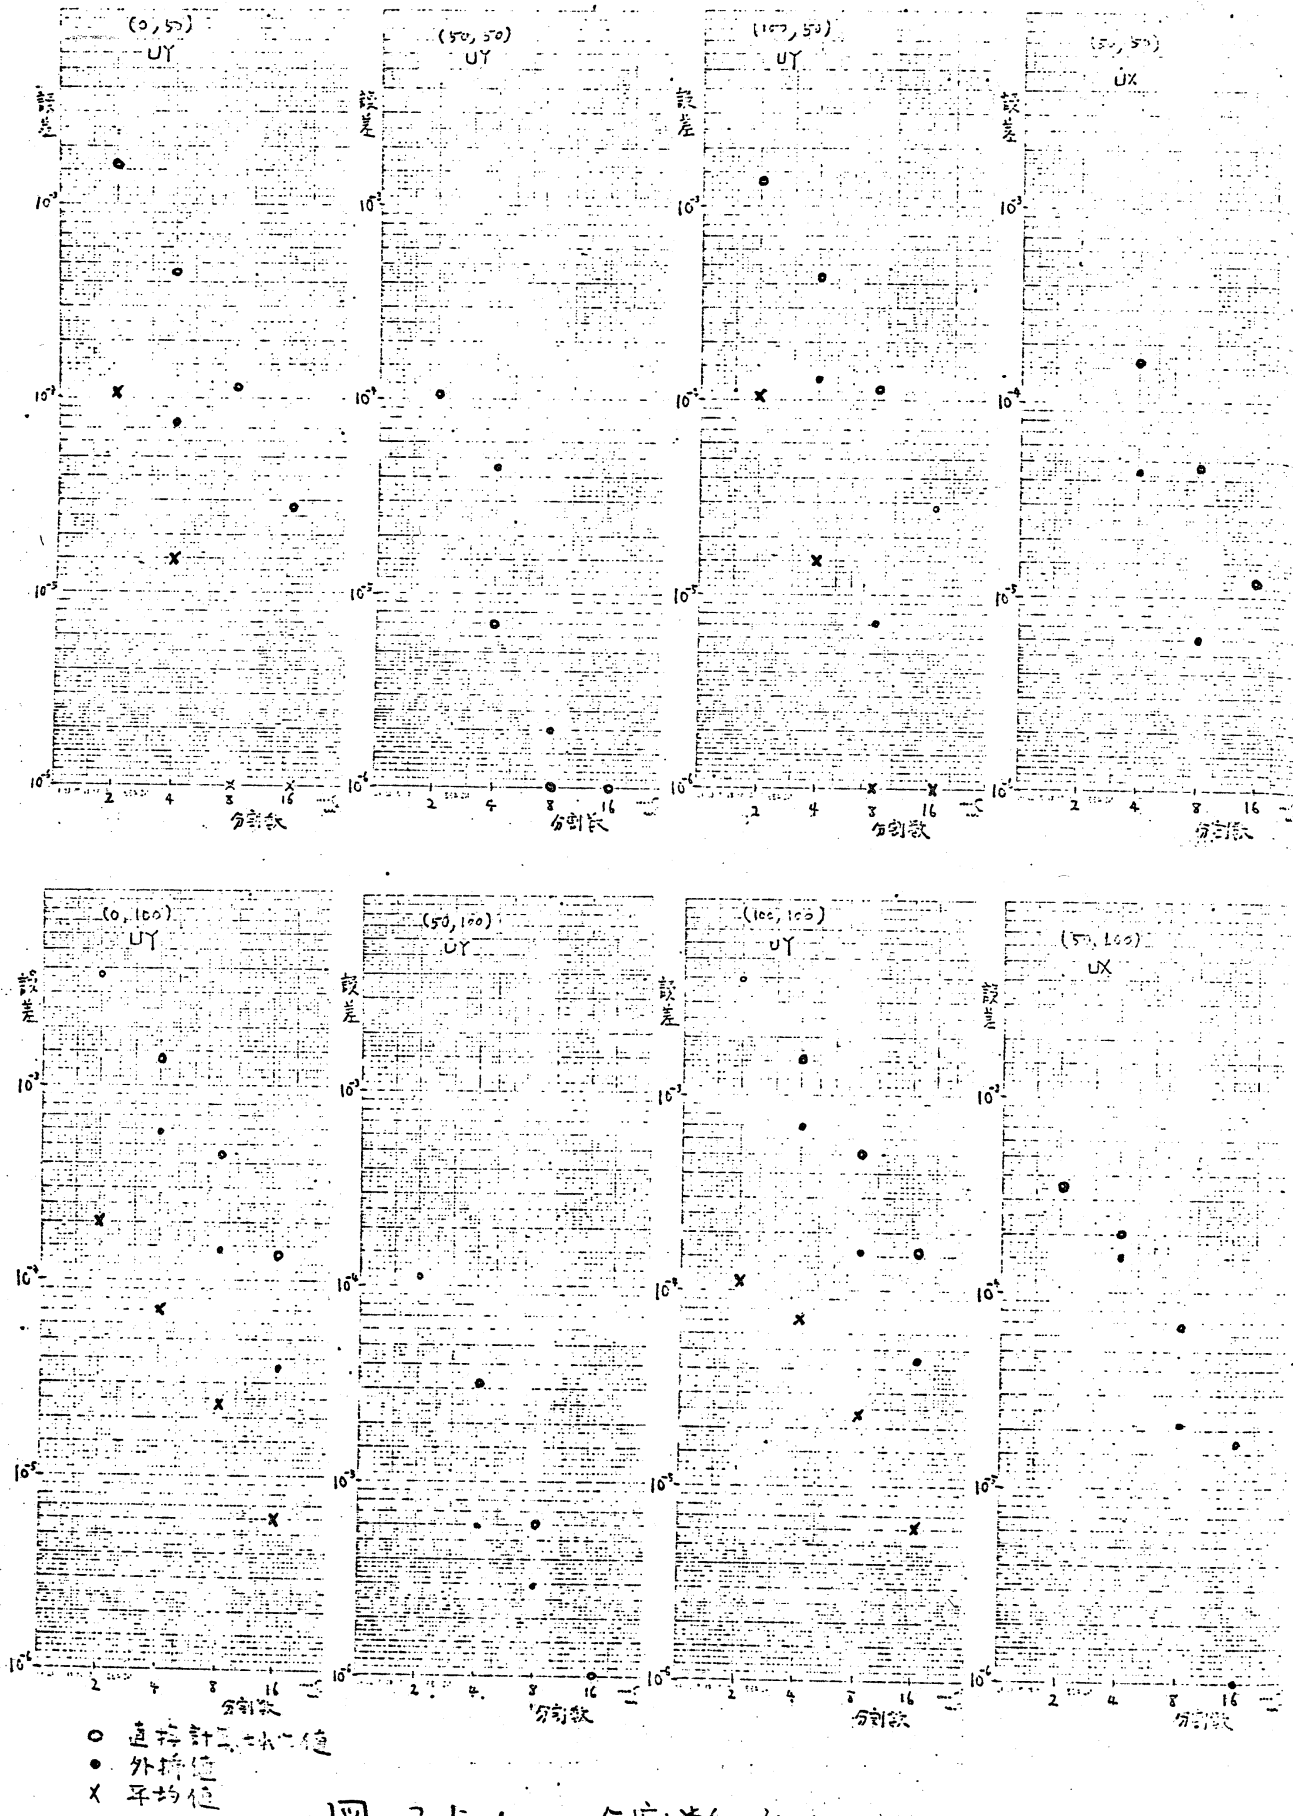 (0,50)
UY
誤差
10⁻³
10⁻⁵
10⁻⁶
2 4 8 16
分割数
(50,50)
UY
誤差
10⁻⁴
10⁻⁶
2 4 8 16
分割数
(100,50)
UY
誤差
10⁻³
10⁻⁵
10⁻⁶
2 4 8 16
分割数
(50,50)
UX
誤差
10⁻³
10⁻⁴
10⁻⁵
2 4 8 16
分割数
(0,100)
UY
誤差
10⁻³
10⁻⁵
10⁻⁶
2 4 8 16
分割数
(50,100)
UY
誤差
10⁻³
10⁻⁴
10⁻⁶
2 4 8 16
分割数
(100,100)
UY
誤差
10⁻³
10⁻⁴
10⁻⁵
10⁻⁶
2 4 8 16
分割数
(50,100)
UX
誤差
10⁻³
10⁻⁴
10⁻⁵
10⁻⁶
2 4 8 16
分割数
○ 直接計算
● 外挿値
× 平均値
図